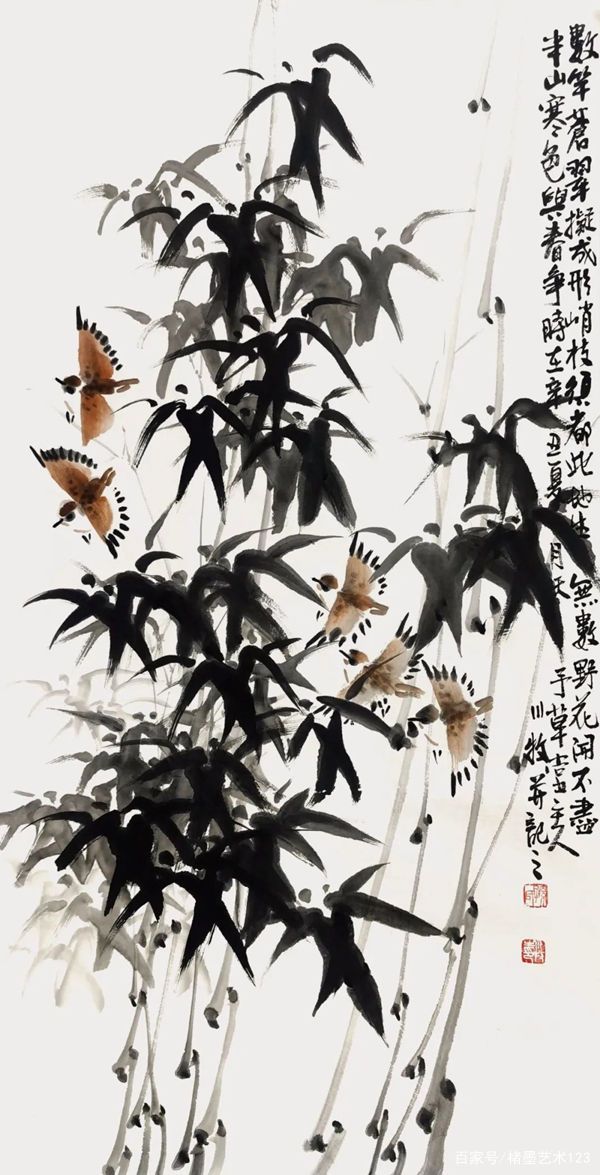 數竿蒼翠擬成形峭枝須都此地生無數野花開不盡
半山寒色與春争時在辛丑夏月于草堂主人
川牧并記之
百家号/楮墨艺术123